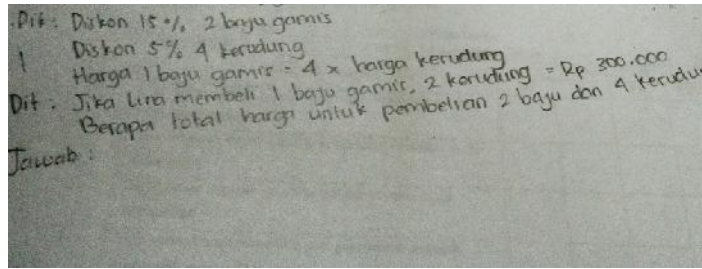 Dit : Diskon 15 % 2 baju gamis
1 Diskon 5% 4 kerudung
Harga 1 baju gamis = 4 x harga kerudung
Dit : Jika Lira membeli 1 baju gamis, 2 kerudung = Rp 300.000
Berapa total harga untuk pembelian 2 baju dan 4 kerudu
Jawab :